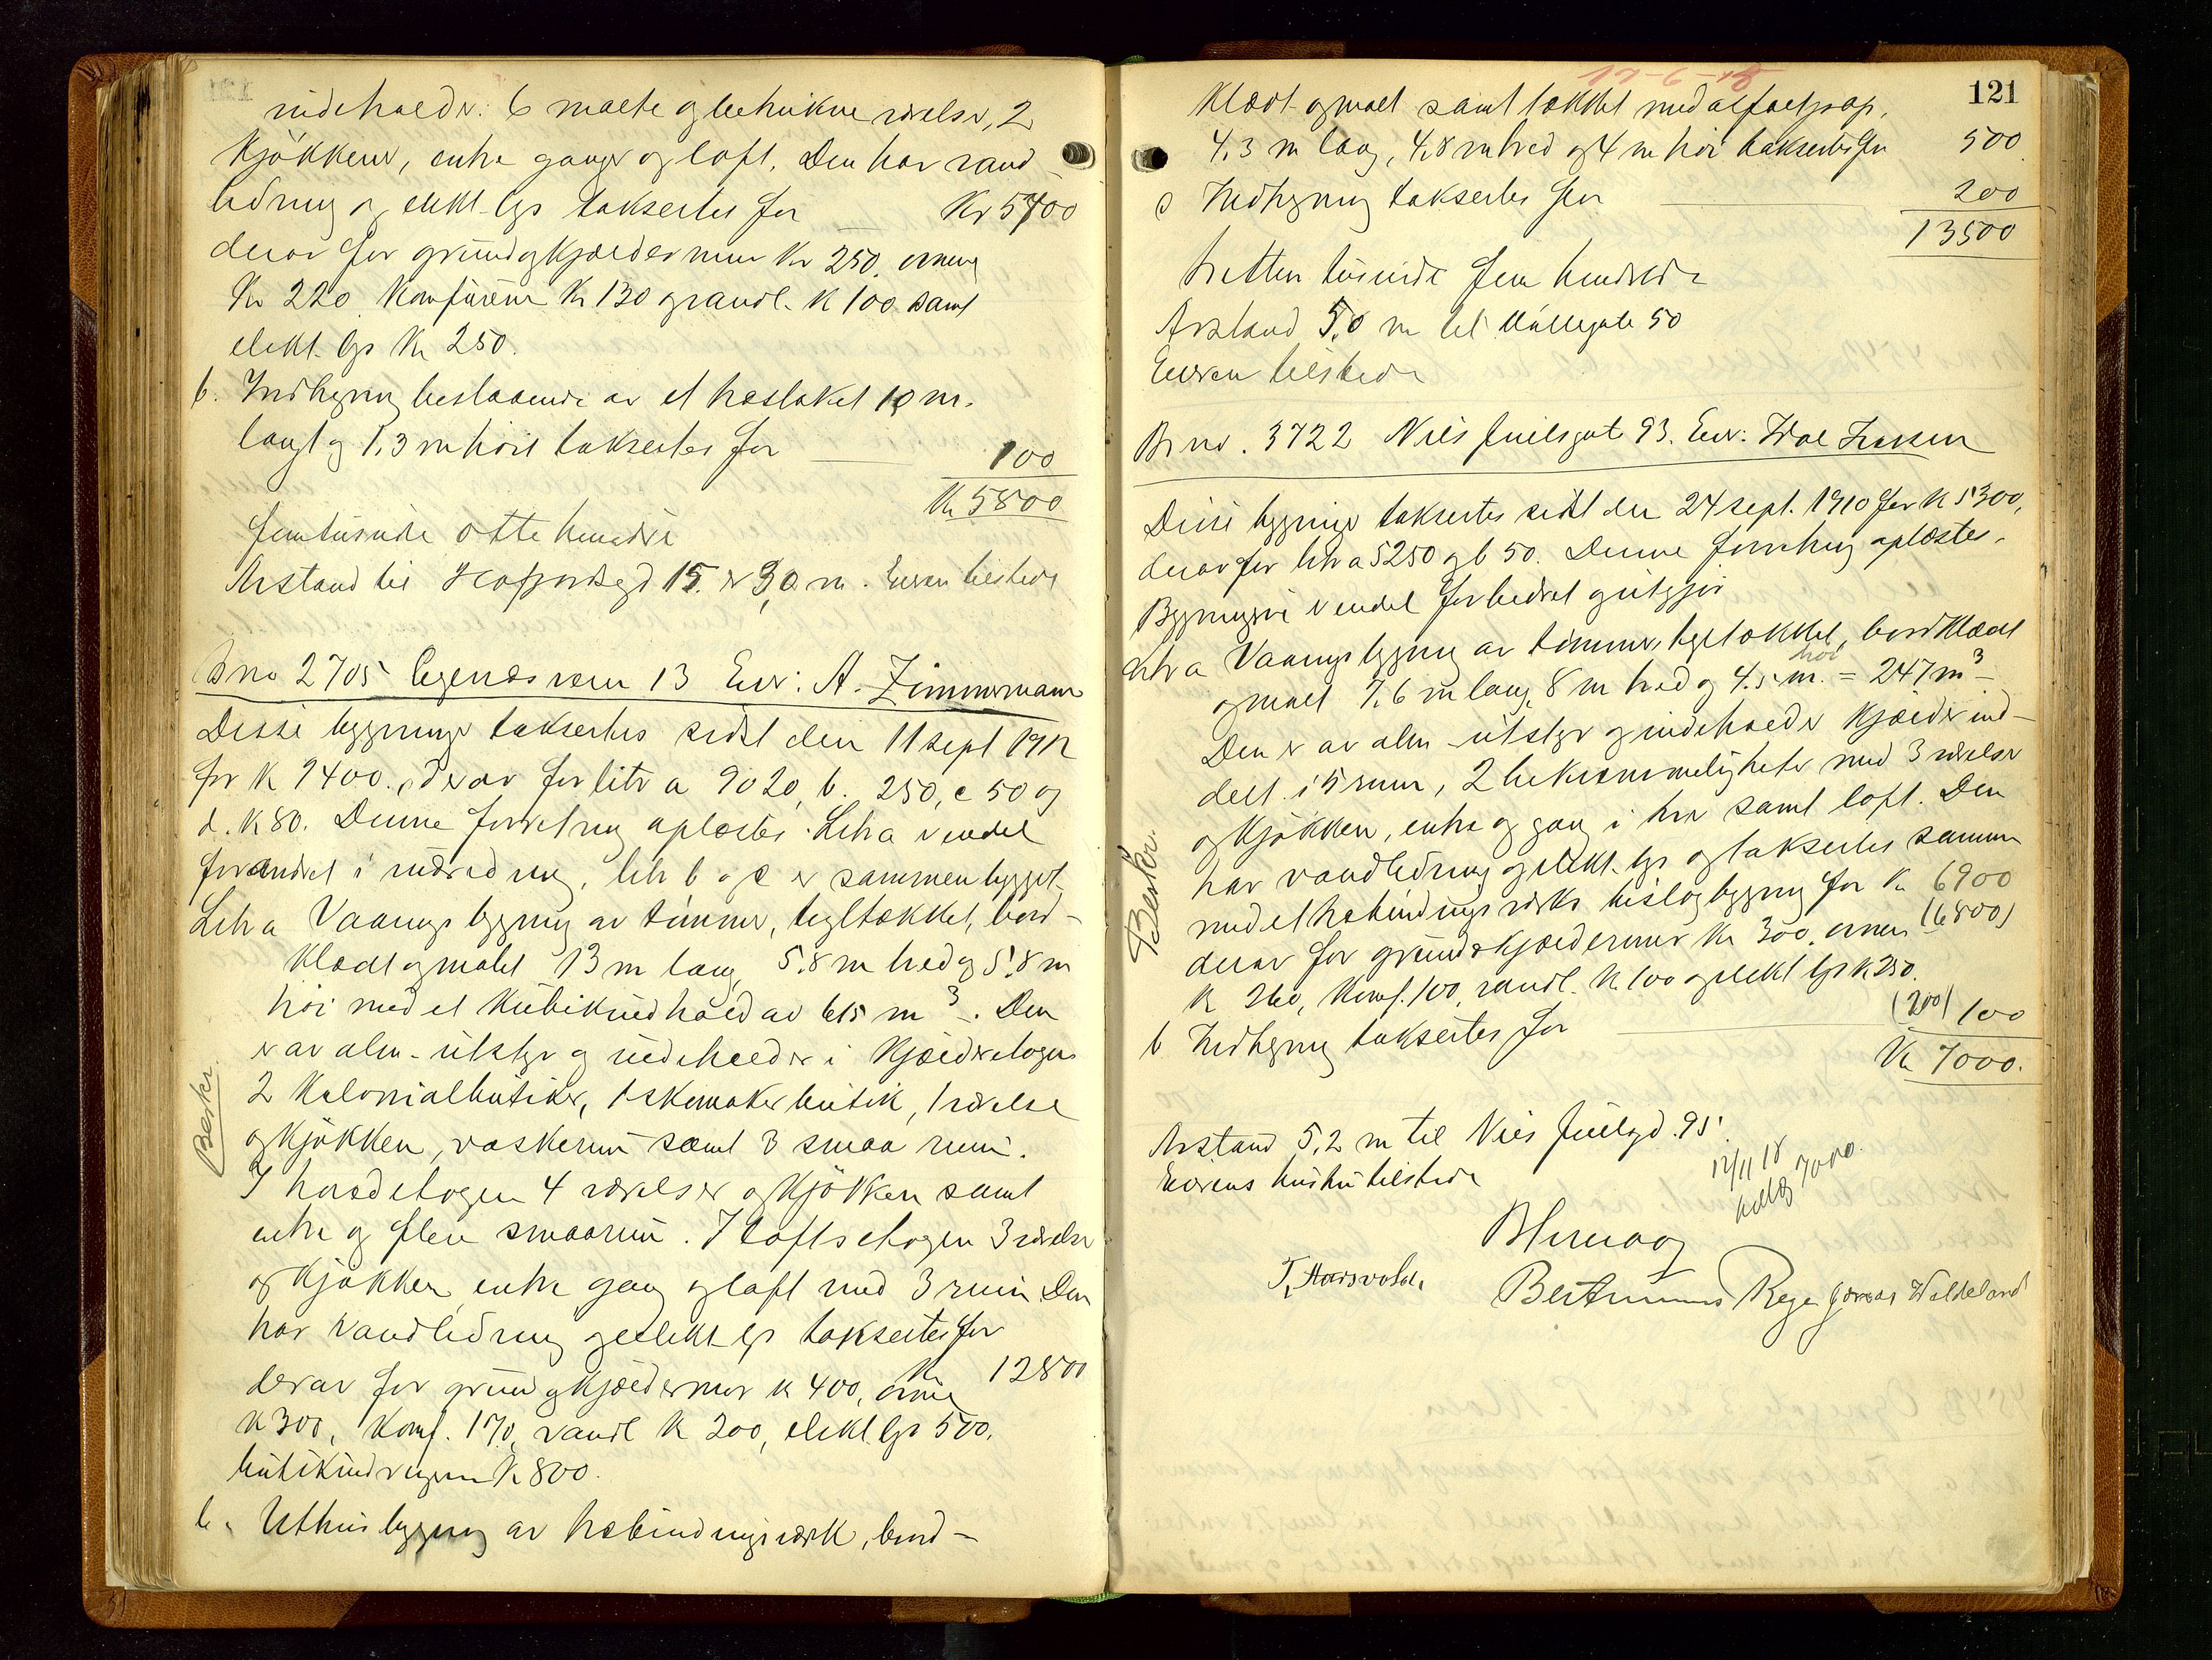 indeholder: 6 malte og betrukne værelser, 2
kjökkener, entre ganger og loft. Den har vand-
ledning og elekt. lys taksertes for Kr 5700
derav for grund og kjældermur Kr 250. ovnene
Kr 220. Komfürene Kr 130 og vandl. K 100 samt
elekt. lys Kr 250.
b. Indhegning bestaaende av et træstaket 10 m.
langt og 1,3 m höit taksertes for 100
Kr 5800
femtusinde otte hundre
Avstand til 15. er 3,0 m. Eieren tilstede
Brno 2705 13 Eier: A. Zimmermann
Disse bygninger taksertes sidst den 11 sept 1912
for K 9400. derav for litr a 9020, b. 250, c 50 og
d. K 80. Denne forretning oplæstes. Litr a er endel
forandret i indredning, litr b og c er sammenbygget.
Litr a Vaaningsbygning av tömmer, tegltækket, bord-
klædt og malet 13 m lang, 5.8 m bred og 5,8 m
höi med et kubikindhold av 615 m³. Den
er av alm. utstyr og indeholder i kjælderetagen
2 Kolonialbutiker, 1 skomakerbutik, 1 værelse
og kjökken, vaskerum samt 3 smaa rum.
Beskr.
I hovedetagen 4 værelser og kjökken samt
entre og flere smaarum. I loftsetagen 3 værelser
og kjökken, entre gang og loft med 3 rum Den
har vandledning og elekt. lys taksertes for
Kr 12800
derav for grund og kjældermur K 400, ovne
K 300, Komf. 170, vandl K 200, elekt. lys 500,
butikindregninger K 800.
b. Uthusbygning av træbindingsværk, bord-
121
klædt og malt samt tækket med asfaltpap.
4,3 m lang, 4,8 m bred og 4 m höi taksertes for 500
c Indhegning taksertes for 200
13500
tretten tusinde fem hundrede
Avstand 5,0 m til Møllegate 50
Eieren tilstede
Brno. 3722 Niels Juelsgate 93. Eier:
Disse bygninger taksertes sidst den 24 sept. 1910 for K 5300,
derav for litr a 5250 og b 50. Denne forretning oplæstes.
Bygningene er endel forbedret og utgjør
Litr a Vaaningsbygning av tömmer, tegltækket, bordklædt
og malt 7,6 m lang, 8 m bred og 4.5 m. höi = 247 m³
Den er av alm. utstyr og indeholder kjælder ind-
delt i 5 rum, 2 bekvemmeligheter med 3 værelser
og kjökken, entre og gang i hver samt loft. Den
har vandledning og elekt. lys og taksertes sammen
Beskr.
med et træbindingsværks bislagbygning for Kr 6900
derav for grund og kjældermur Kr 300. ovnen (6800)
K 260, Komf. 100, vandl. K 100 og elekt lys K 250.
b Indhegning taksertes for (200) 100
Kr 7000.
Avstand 5,2 m til Niels Juelsgd. 95.
Eierens hustru tilstede
12/11 18
7000.
T. Haarsvold.